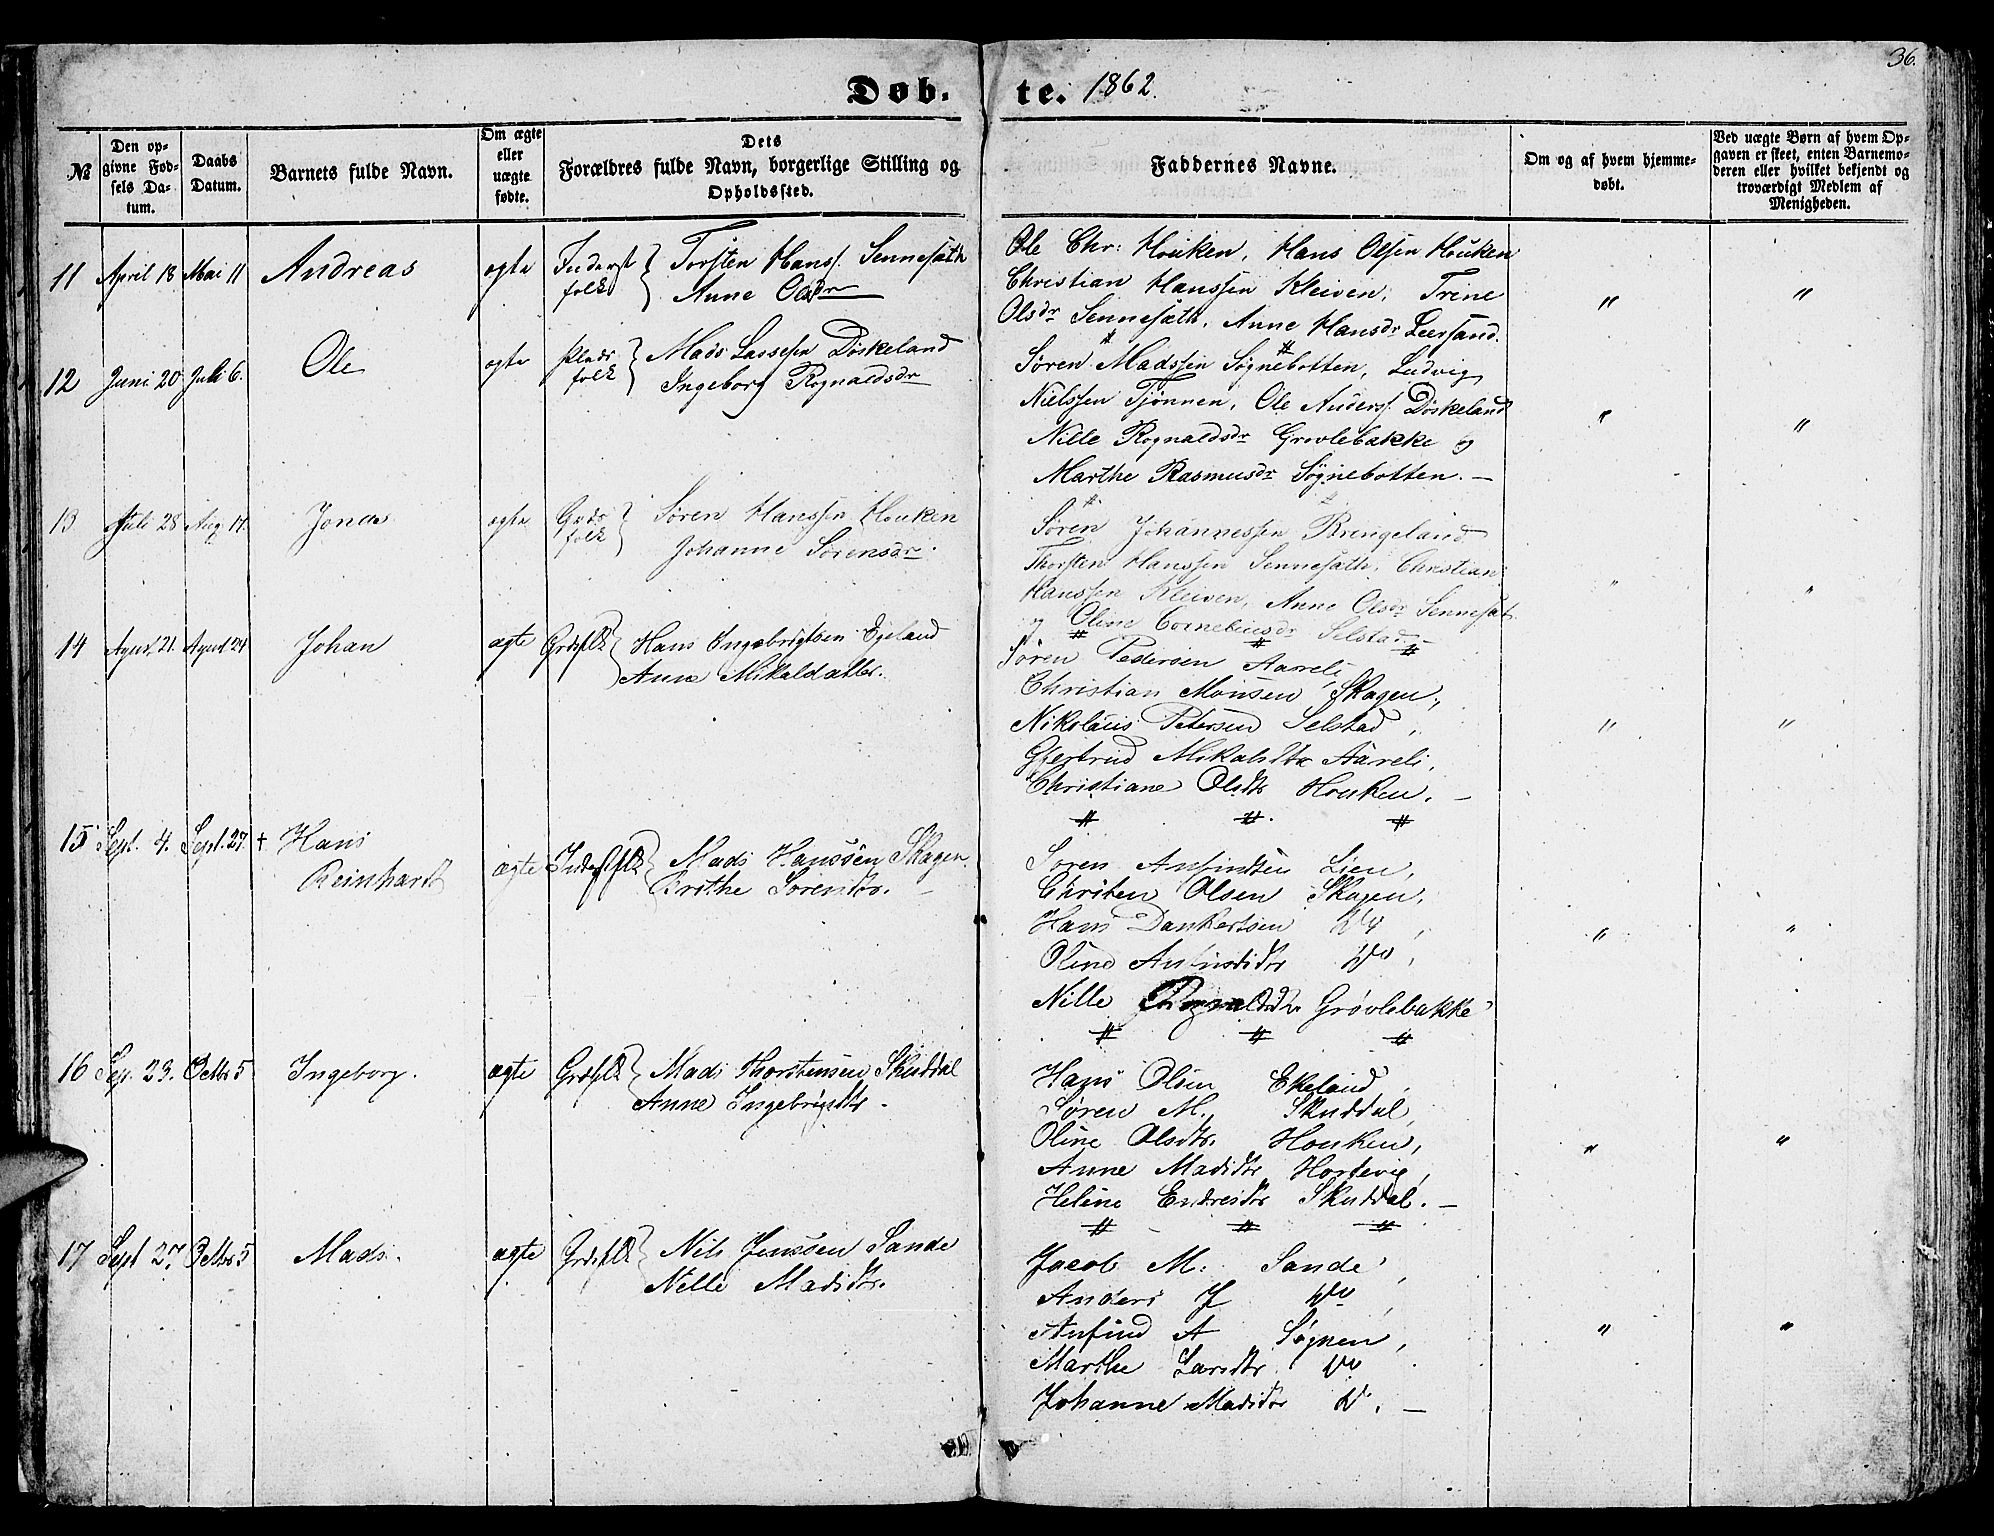 36.
Døb- te. 1862.
№
Den op-
givne Fød-
sels Da-
tum.
Daabs
Datum.
Barnets fulde Navn.
Om ægte
eller
uægte
fødte.
Dets
Forældres fulde Navn, borgerlige Stilling og
Opholdssted.
Faddernes Navne.
Om og af hvem hjemme-
døbt.
Ved uægte Børn af hvem Op-
gaven er skeet, enten Barnemo-
deren eller hvilket bekjendt og
troværdigt Medlem af
Menigheden.
11 April 18 Mai 11 Andreas ægte Inderst folk } Torsten Hanss. Sennesæth
Anne Olsdr
Ole Chr: Houken, Hans Olsen Houken
Christian Hanssen Kleiven, Trine
Olsdr Sennesæth, Anne Hansdr Leersand.
" "
12 Juni 20 Juli 6. Ole ægte Plads folk } Mads Lassesen Døskeland
Ingeborg Rognaldsdr
Søren Madssen Søgnebotten, Ludvig
Nielssen Tjønnen, Ole Anderss. Døskeland
Nille Rognaldsdr Grovlebakke og
Marthe Rasmusdr Søgnebotten. —
" "
13 Juli 28 Aug 17. Jonas ægte Gaards folk } Søren Hanssen Houken
Johanne Sørensdr.
Søren Johannessen Brengeland
Thorsten Hanssen Sennesæth, Christian
Hanssen Kleiven, Anne Olsdr Sennesæt
og Oline Corneliusdr Selstad. —
" "
14 Agust 21. Agust 24 Johan ægte Grdsflk } Hans Ingebrigtsen Egeland
Anne Mikaldatter.
Søren Pedersen Aareli,
Christian Monsen Skagen,
Nikolaus Petersen Selstad,
Gjertrud Mikalsdtr Aareli,
Christiane Olsdtr Houken. —
" "
15 Sept. 4. Sept. 27. + Hans
Reinhardt
ægte Inderstflk } Mads Hanssen Skagen
Brithe Sørensdtr. —
Søren Anfindsen Lien,
Christen Olsen Skagen,
Hans Dankertsen do,
Oline Anfindsdtr do,
Nille Rognaldsdtr Grøvlebakke
" "
16 Sep. 23. Octbr 5 Ingeborg. ægte Grdsflk } Mads Thorstensen Skuddal
Anne Ingebrigtsdtr.
Hans Olsen Ekeland,
Søren M. Skuddal,
Oline Olsdtr. Houken,
Anne Madsdtr Hortevig,
Heline Endresdtr Skuddal. —
" "
17 Sept 27 Octbr 5 Mads. ægte Grdsflk } Nils Jenssen Sande
Nille Madsdtr.
Jacob M. Sande,
Anders J do,
Anfind A Søgnen,
Marthe Larsdtr do
Johanne Madsdtr do. —
" "